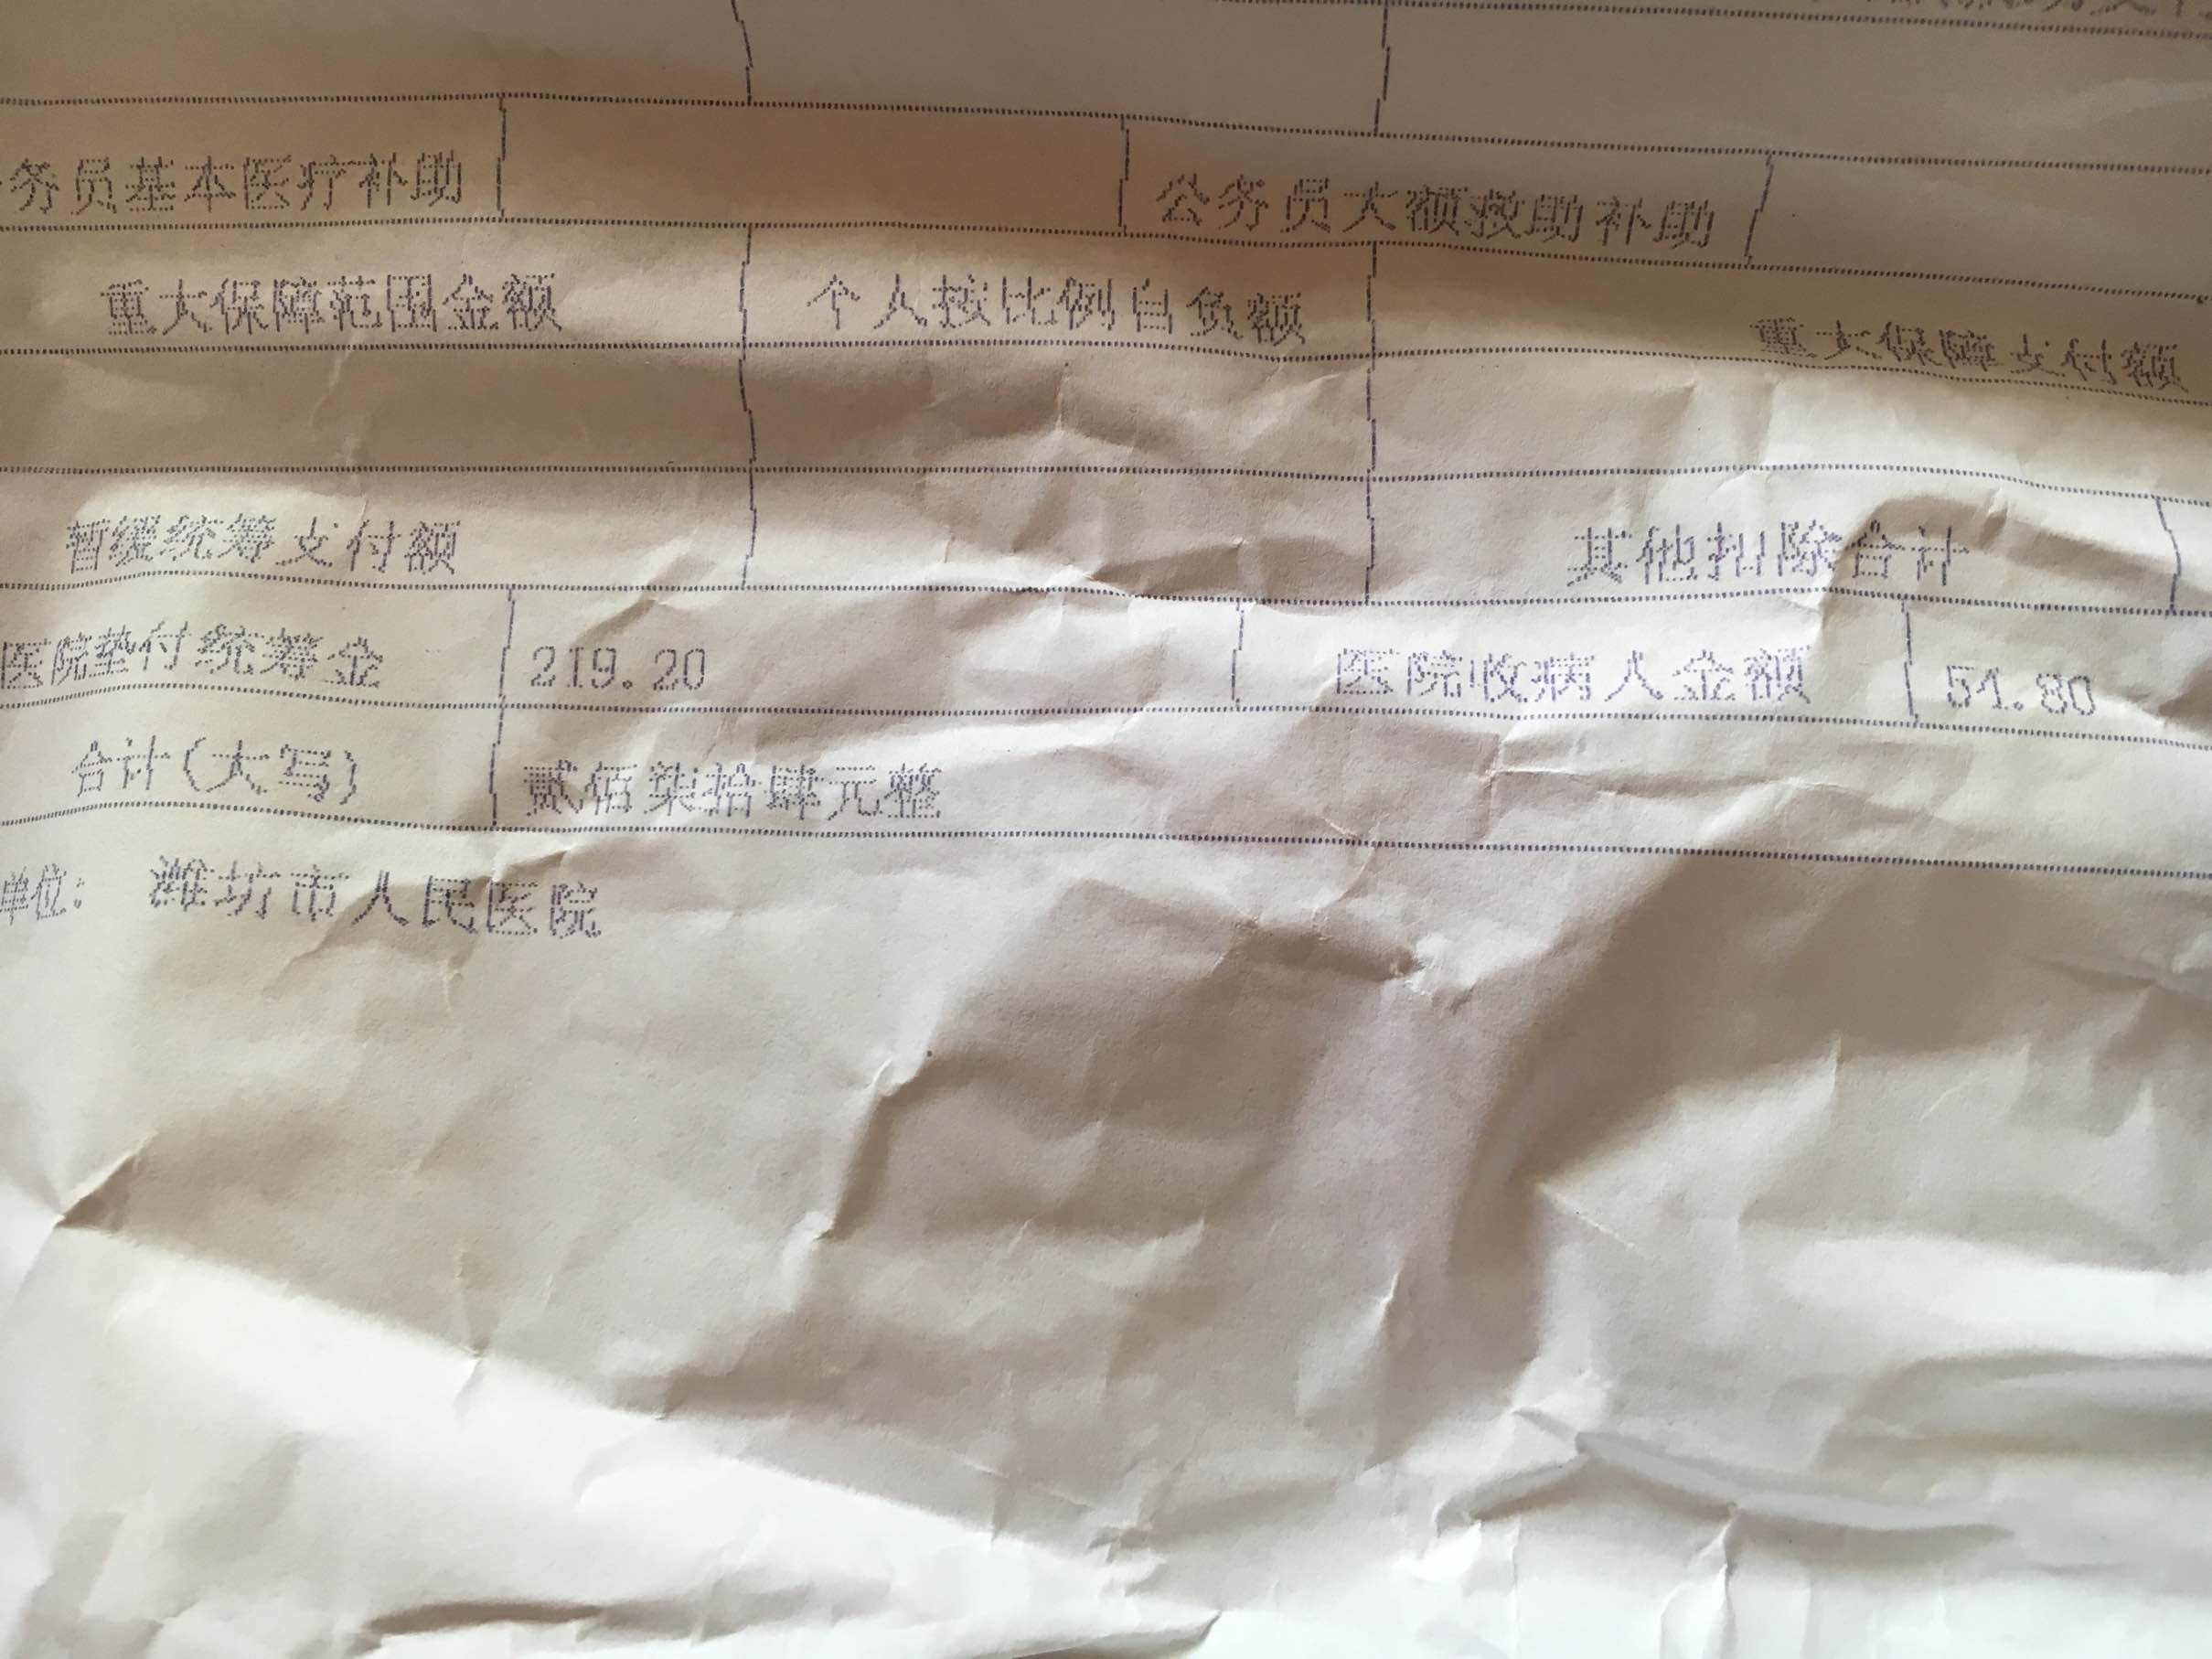 务员基本医疗补助 公务员大额救助补助
重大保障范围金额 个人按比例自负额 重大保障支付额
暂缓统筹支付额 其他扣除合计
医院垫付统筹金 219.20 医院收病人金额 54.80
合计(大写) 贰佰柒拾肆元整
单位: 潍坊市人民医院